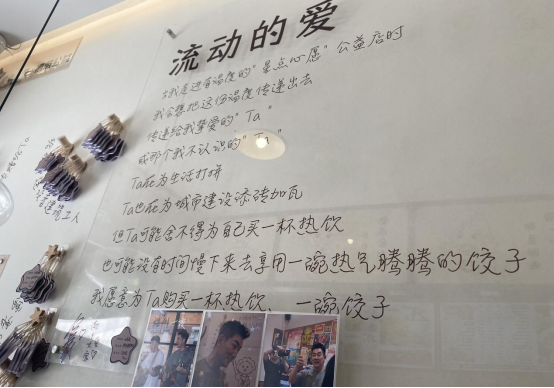 流动的爱
当我走进有温度的“星点心愿”公益店时
我会想把这份温度传递出去
传递给我挚爱的“Ta”
或那个我不认识的“Ta”
Ta在为生活打拼
Ta也在为城市建设添砖加瓦
但Ta可能舍不得为自己买一杯热饮
也可能没有时间慢下来去享用一碗热气腾腾的饺子
我愿意为Ta购买一杯热饮、一碗饺子
建筑工人